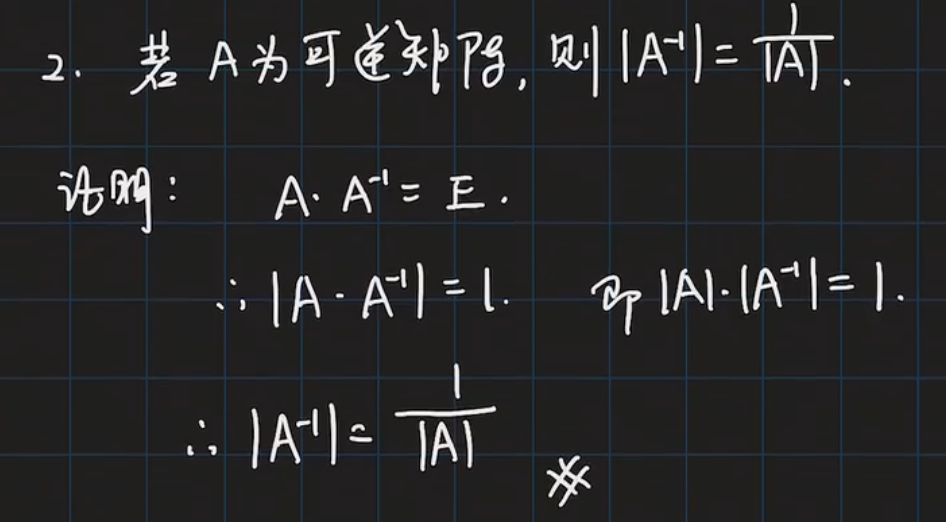 2. 若 A 为可逆矩阵, 则 |A⁻¹| = 1/|A|.
证明: A · A⁻¹ = E.
∴ |A · A⁻¹| = 1. 即 |A| · |A⁻¹| = 1.
∴ |A⁻¹| = 1/|A| #